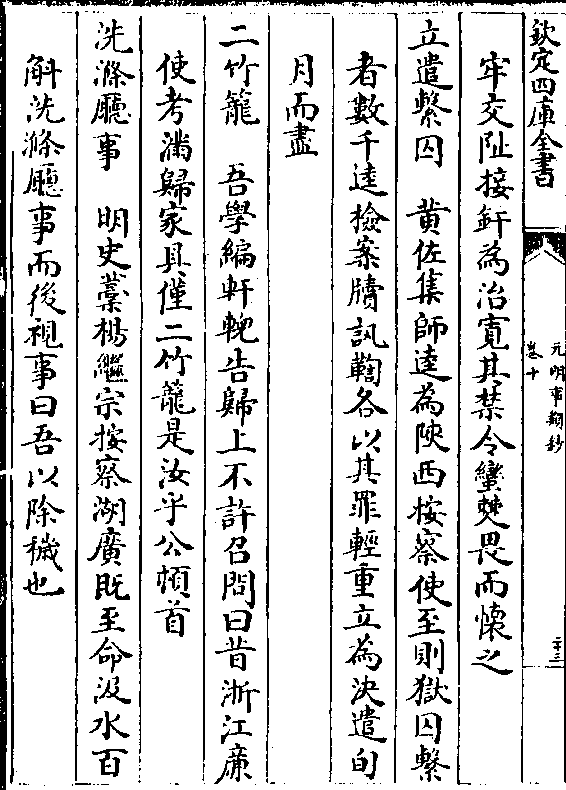 欽定四庫全書
元明事類鈔
卷十
二十三
牢交阯接釬為治寛其禁令蠻僰畏而懷之
立遣繫囚　黄佐集師逵為陜西按察使至則獄囚繫
者數千逵檢案牘訊鞫各以其罪輕重立為決遣旬
月而盡
二竹籠　吾學編軒輗告歸上不許召問曰昔浙江亷
使考滿歸家具僅二竹籠是汝乎公頓首
洗滌廳事　明史藁楊繼宗按察湖廣既至命汲水百
斛洗滌廳事而後視事曰吾以除穢也